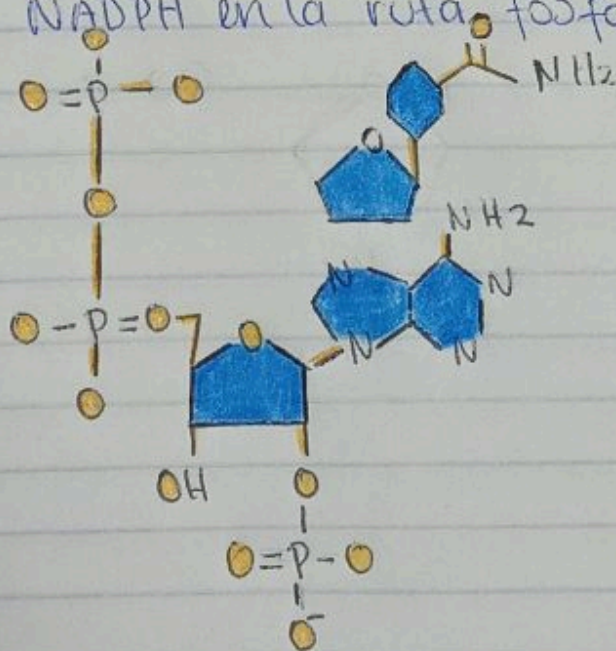 NADPH en la ruta fosfo
O
O=P-O
O
NH2
O
O
NH2
N
N
O-P=O
O
N
N
O
OH
O
O=P-O
O-